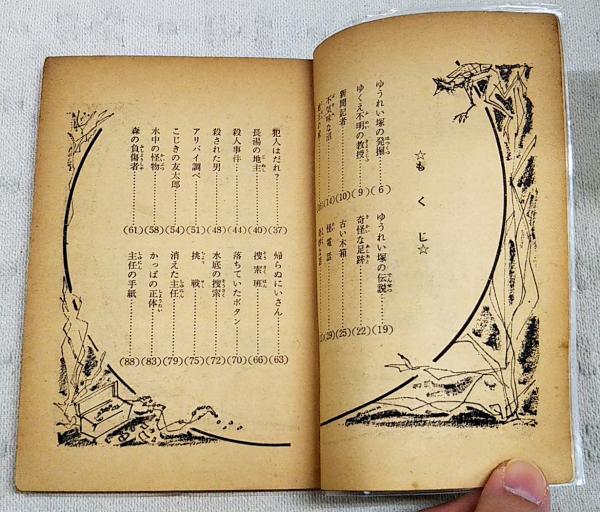 ☆もくじ☆
ゆうれい塚の発掘………(6)
ゆくえ不明の教授………(9)
新聞記者………(10)
不気味な沼………(14)
ゆうれい塚の伝説………(19)
奇怪な足跡………(22)
古い木箱………(25)
怪電話………(29)
犯人はだれ？………(37)
長湯の地主………(40)
殺人事件………(44)
殺された男………(48)
アリバイ調べ………(51)
こじきの友太郎………(54)
水中の怪物………(58)
森の負傷者………(61)
帰らぬにいさん………(63)
捜索班………(66)
落ちていたボタン………(70)
水底の捜索………(72)
挑戦………(75)
消えた主任………(79)
かっぱの正体………(83)
主任の手紙………(88)